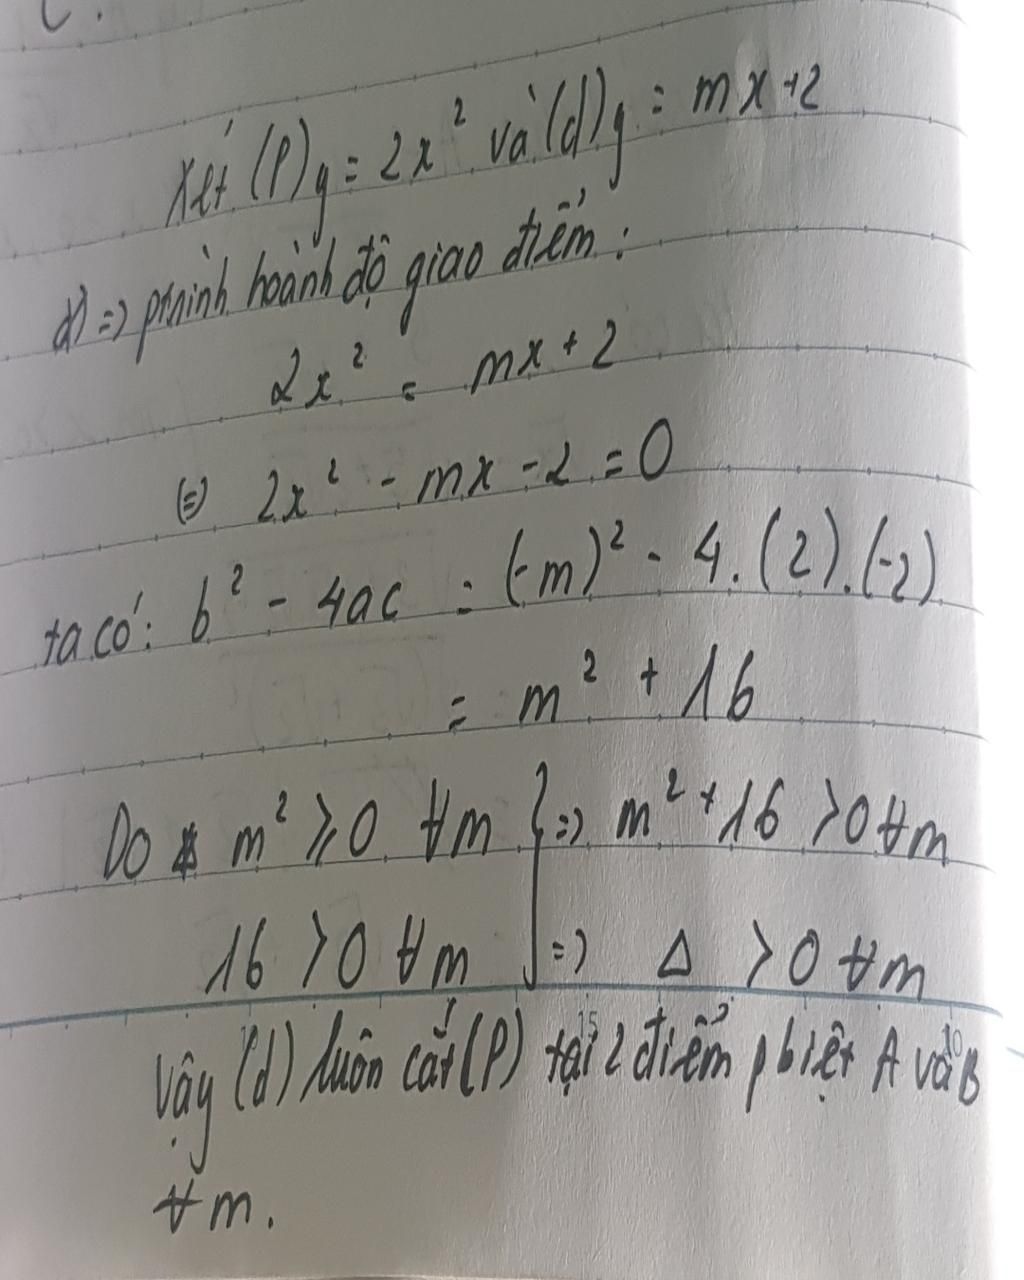 Xét (P) y = 2x² và (d) y = mx + 2
d) => ptrình hoành độ giao điểm :
2x² = mx + 2
(=) 2x² - mx - 2 = 0
ta có : b² - 4ac = (-m)² - 4. (2).(-2)
= m² + 16
Do m² ≥ 0 ∀m } => m² + 16 > 0 ∀m
16 > 0 ∀m => Δ > 0 ∀m
Vậy (d) luôn cắt (P) tại 2 điểm pbiệt A và B
∀m.